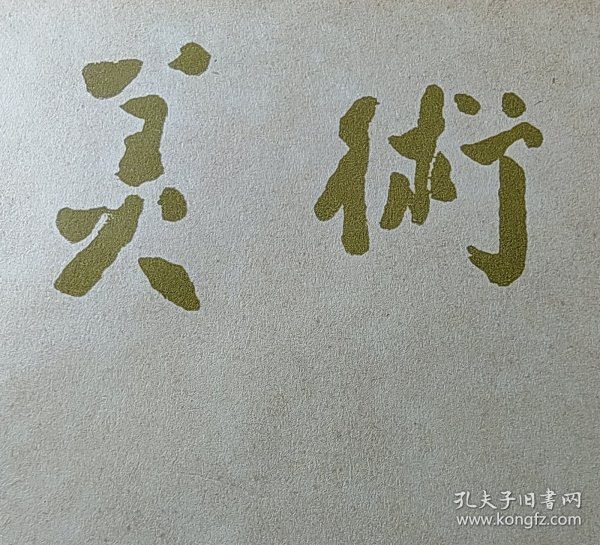 美術
孔夫子旧書网
www.kongfz.com